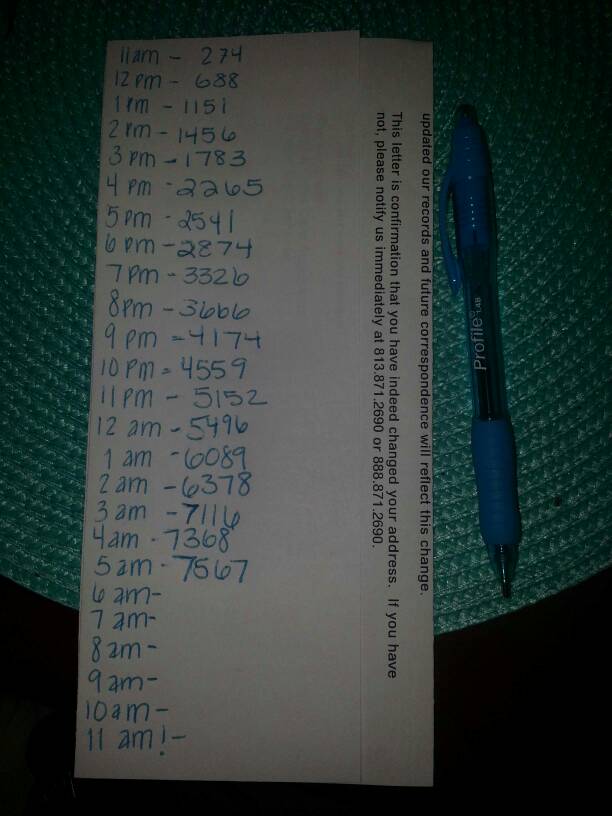 11am - 274
12 pm - 688
1 pm - 1151
2 pm - 1456
3 pm - 1783
4 pm - 2265
5 pm - 2541
6 pm - 2874
7 pm - 3326
8pm - 3666
9 pm - 4174
10 pm - 4559
11 pm - 5152
12 am - 5496
1 am - 6089
2 am - 6378
3 am - 7116
4am - 7368
5 am - 7567
6 am-
7 am-
8 am-
9 am-
10 am-
11 am!-
updated our records and future correspondence will reflect this change.
This letter is confirmation that you have indeed changed your address. If you have
not, please notify us immediately at 813.871.2690 or 888.871.2690.
Profile